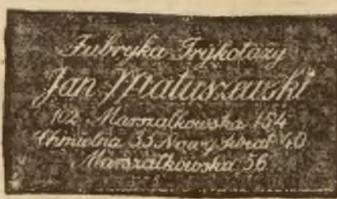 Fabryka Trykotaży
Jan Matuszewski
102 Marszałkowska 154
Chmielna 35 Nowy Świat 40
Marszałkowska 56